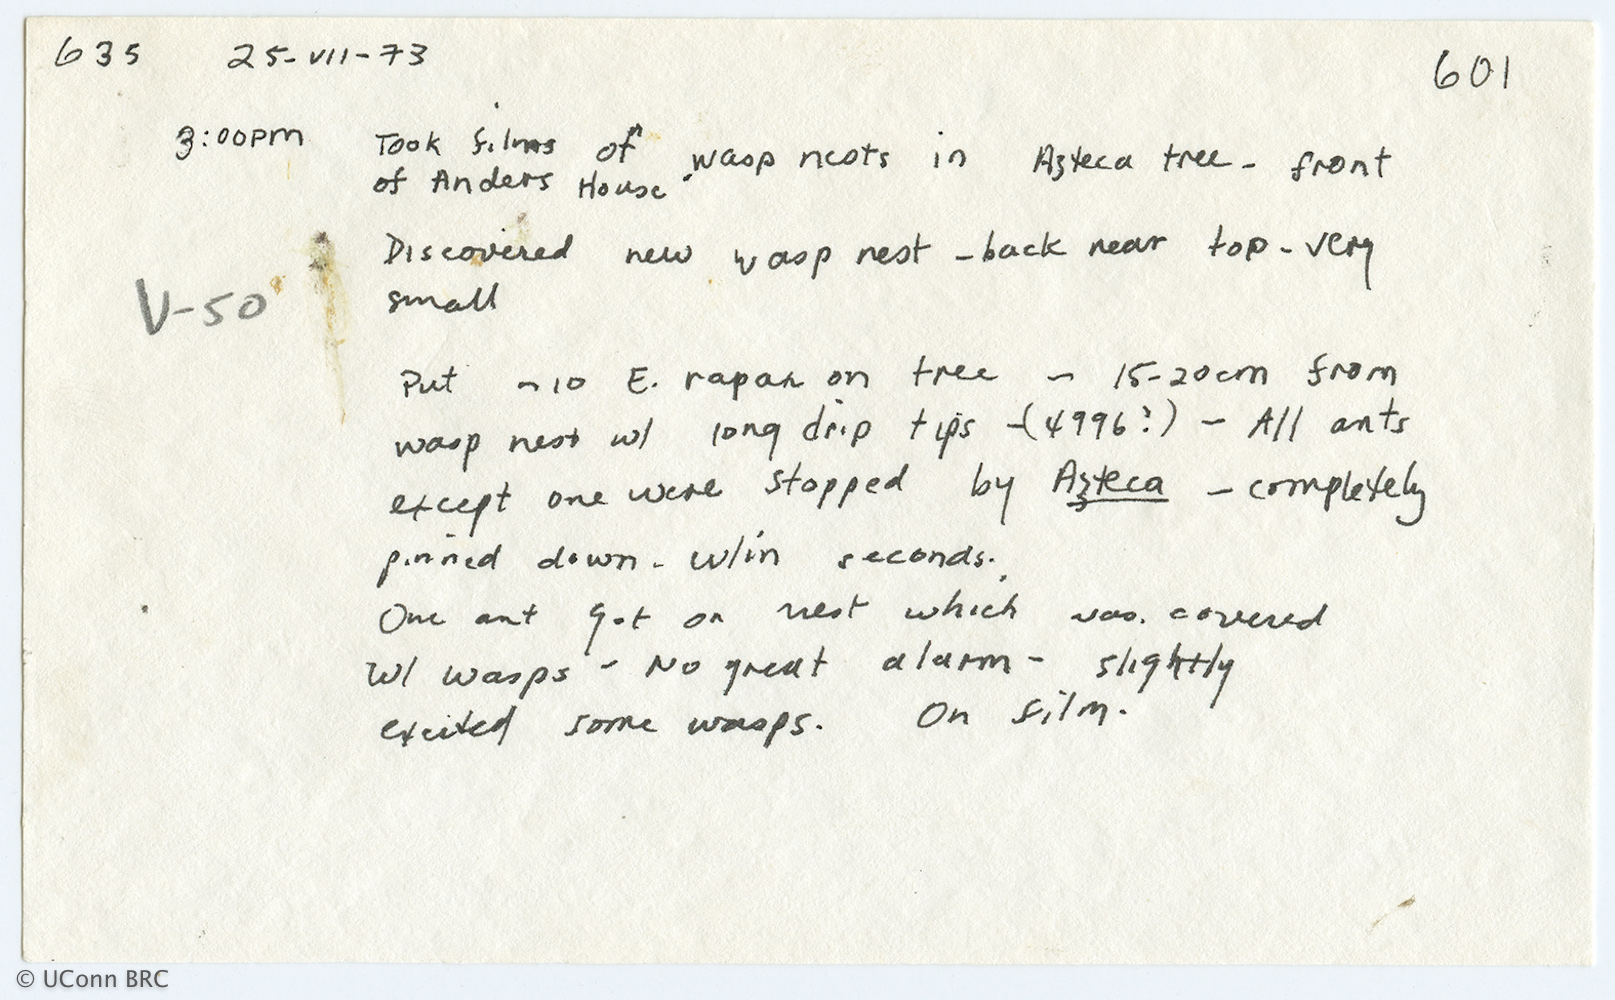 635 25-VII-73 601
3:00pm Took films of wasp nests in Azteca tree - front
of Anders House.
Discovered new wasp nest - back near top - very
small
V-50
Put ~10 E. rapax on tree ~ 15-20cm from
wasp nest w/ long drip tips - (4996?) - All ants
except one were stopped by Azteca - completely
pinned down - w/in seconds.
One ant got on nest which was covered
w/ wasps - No great alarm - slightly
excited some wasps. On film.
© UConn BRC